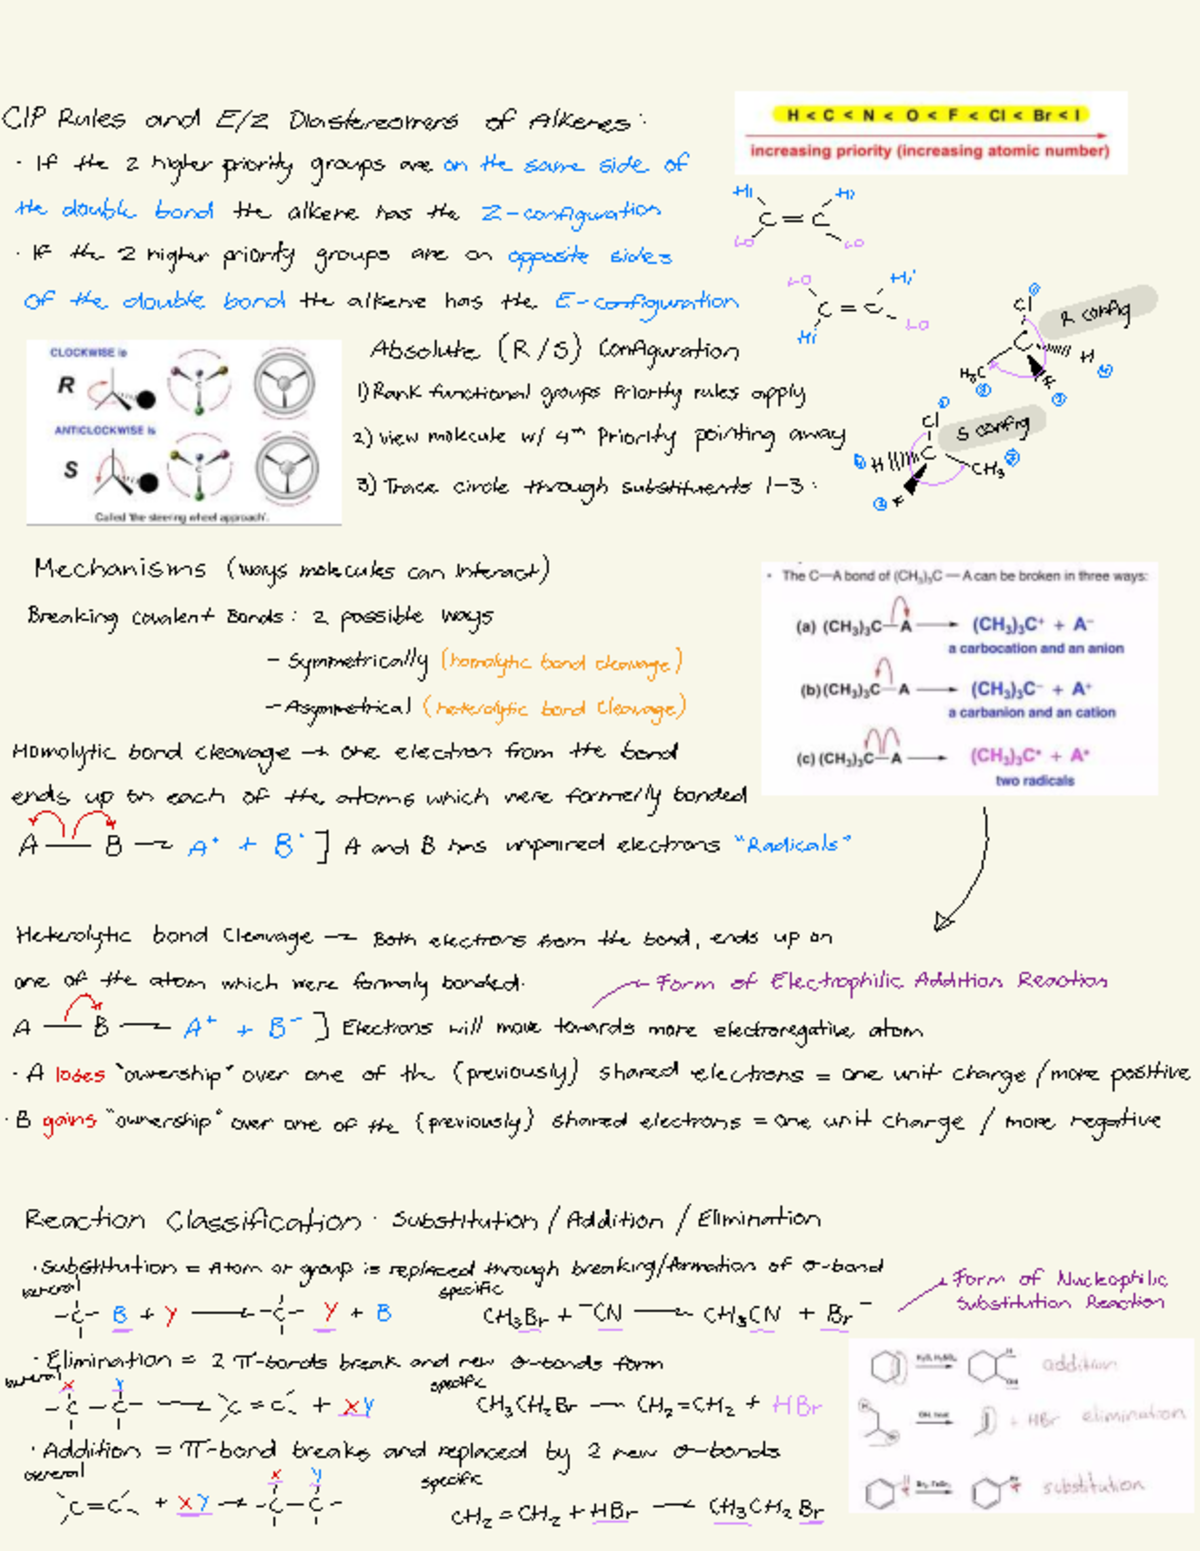 CIP Rules and E/Z Diastereomers of Alkenes:
H < C < N < O < F < Cl < Br < I
increasing priority (increasing atomic number)
· If the 2 higher priority groups are on the same side of
the double bond the alkene has the Z-configuration
· If the 2 higher priority groups are on opposite sides
of the double bond the alkene has the E-configuration
Hi Hi
C = C
LO LO
LO Hi
C = C
Hi LO
CLOCKWISE is
R
ANTICLOCKWISE is
S
Called 'the steering wheel approach'.
Absolute (R/S) Configuration
1) Rank functional groups Priority rules apply
2) View molecule w/ 4th Priority pointing away
3) Trace circle through substituents 1-3:
Cl R config
C H
H3C
Cl S config
H C CH3
Mechanisms (ways molecules can interact)
Breaking Covalent Bonds: 2 possible ways
- Symmetrically (homolytic bond cleavage)
- Asymmetrical (heterolytic bond cleavage)
· The C—A bond of (CH3)3C—A can be broken in three ways:
(a) (CH3)3C—A → (CH3)3C+ + A-
a carbocation and an anion
(b) (CH3)3C—A → (CH3)3C- + A+
a carbanion and an cation
(c) (CH3)3C—A → (CH3)3C• + A•
two radicals
Homolytic bond cleavage → one electron from the bond
ends up on each of the atoms which were formerlly bonded
A — B → A• + B• ] A and B has unpaired electrons "Radicals"
Heterolytic bond Cleavage → Both electrons from the bond, ends up on
one of the atom which were formaly bonded.
Form of Electrophilic Addition Reaction
A — B → A+ + B- ] Electrons will move towards more electroregative atom
· A loses "ownership" over one of the (previously) shared electrons = one unit charge / more positive
· B gains "ownership" over one of the (previously) shared electrons = one unit charge / more negative
Reaction Classification · Substitution / Addition / Elimination
· Substitution = Atom or group is replaced through breaking/formation of σ-bond
general
-C- B + Y → -C- Y + B
specific
CH3Br + -CN → CH3CN + Br-
Form of Nucleophilic
Substitution Reaction
· Elimination = 2 π-bonds break and new σ-bonds form
general
X Y
-C-C- → C=C + XY
specific
CH3CH2Br → CH2=CH2 + HBr
· Addition = π-bond breaks and replaced by 2 new σ-bonds
general
X Y
C=C + XY → -C-C-
specific
CH2=CH2 + HBr → CH3CH2Br
addition
+ HBr elimination
substitution